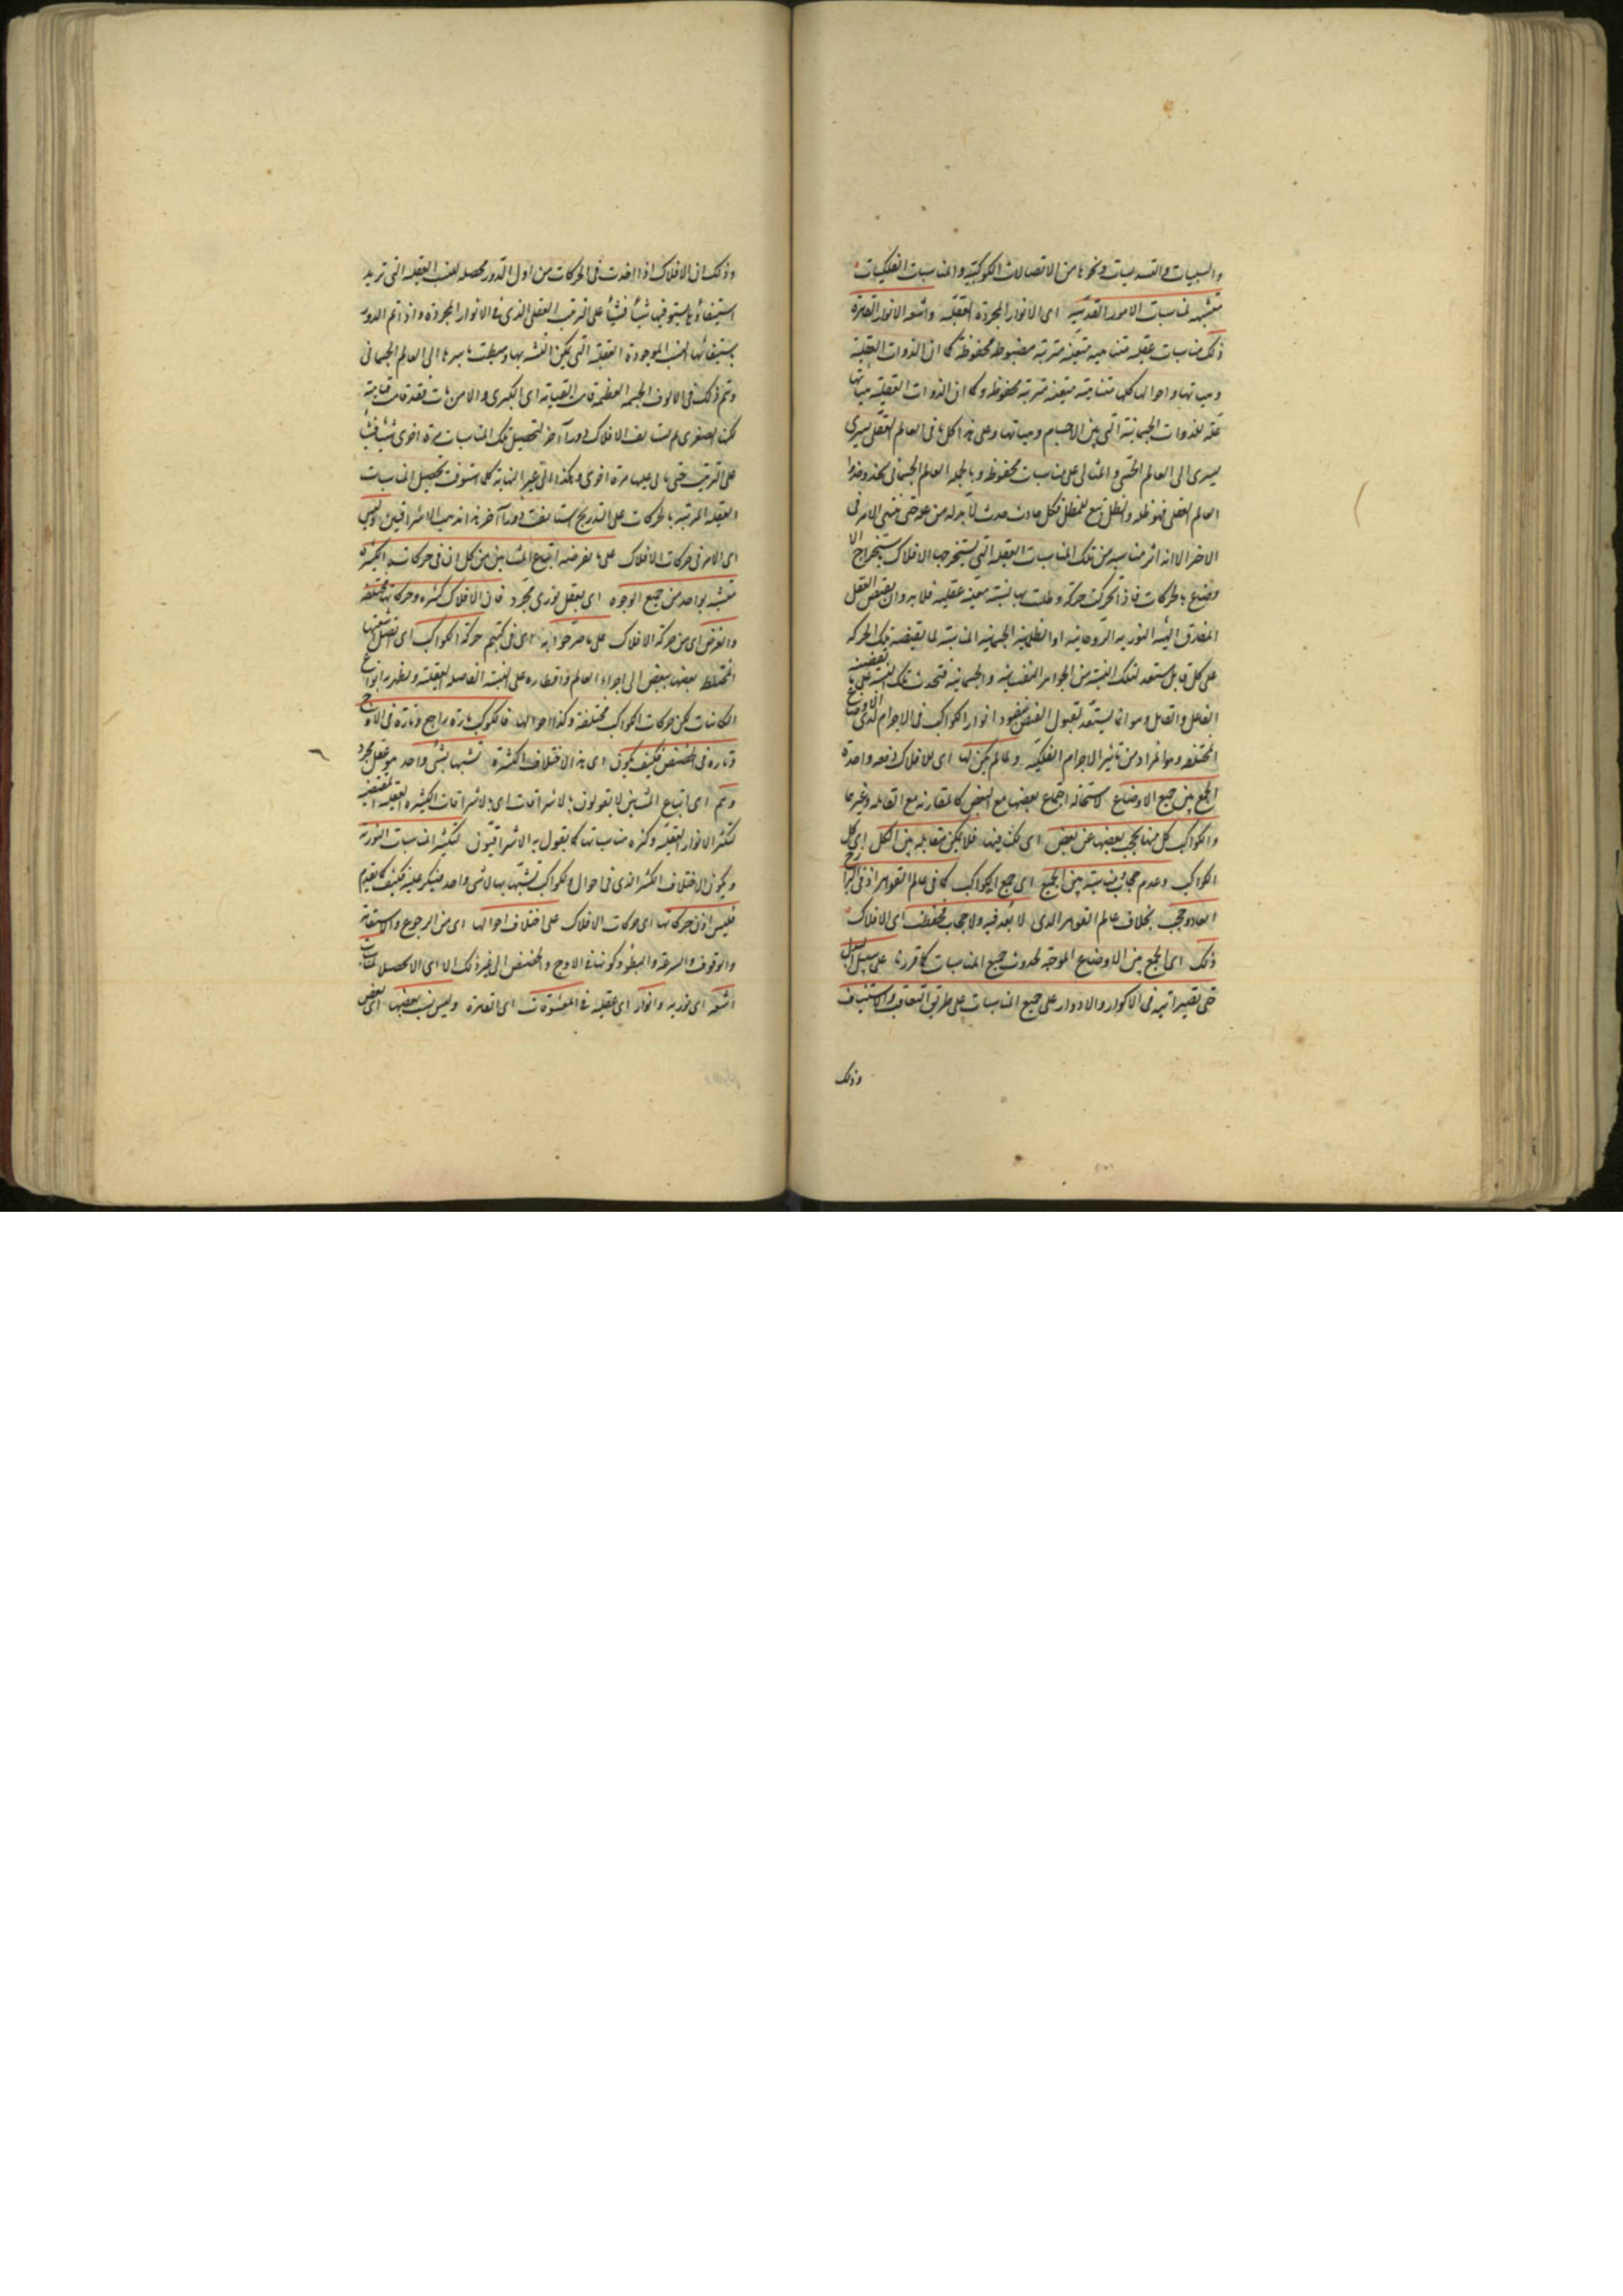 والتسديسات ونحوها من الاتصالات الكوكبية والمناسبات الفلكيات
متشبهة لمناسبات الامور القدسية اى الانوار المجردة العقلية واشعة الانوار القاهرة
ذلك مناسبات عقلية متناهية متعينة مترتبة مضبوطة محفوظة كما ان الذوات العقلية
وهيآتها واحوالها كلها متناهية متعينة مترتبة محفوظة وكما ان الذوات العقلية هيآتها
علة للذوات الجسمانية التى هى الاجسام وهيآتها وعلى هذا كل ما فى العالم العقلى يسرى
يسرى الى العالم الحسى والمثالى على مناسبات محفوظة وبالجملة العالم الجسمانى يحذو حذو
العالم العقلى فهو ظله والظل تبع للمظل فكل حادث حدث لا بد له من
الاخر الا انه اثر مناسبة من تلك المناسبات العقلية التى تستخرجها الافلاك باستخراج الا
وضاع بالحركات فاذا تحركت حركة وطلبت بها نسبة معينة عقلية فلا بد وان يفيض العقل
المفارق الهيئة النورية الروحانية او الظلمانية الجسمانية المناسبة لما تقتضيه تلك الحركة
على كل قابل مستعد لتلك الهيئة من الجواهر النفسانية والجسمانية فتحدث تلك الهيئة على ما يقتضيه
الفاعل والقابل وهو انما يستعد لقبول الفيض انوار الكواكب فى الاجرام الاوضاع
المختلفة وهو المراد من تأثير الاجرام الفلكية ولما لم يكن لها اى للافلاك دفعة واحدة
الجمع بين جميع الاوضاع لاستحالة اجتماع بعضها مع البعض كالمقارنة مع المقابلة وغيرها
والكواكب كل منها يحجب بعضها عن بعض اى فلا يمكن مقابلة بين الكل اى كل
الكواكب وعدم حجاب مناسبة بين الجميع اى جميع الكواكب كما فى عالم القواهر اذ فى البرازخ
ابعاد وحجب بخلاف عالم القواهر الذى لا بعد فيه ولا حجاب فحفظت اى الافلاك
ذلك اى الجمع بين الاوضاع الموجبة لحدوث جميع المناسبات كما قررنا على سبيل البدل
حتى تصير آتية فى الاكوار والادوار على جميع المناسبات على طريق التعاقب والاستيناف
وذلك
وذلك ان الافلاك اذا اخذت فى الحركات من اول الدور محصلة للنسب العقلية التى تريد
استيفاءها يستوفيها شيئا فشيئا على الترتيب العقلى الذى فى الانوار المجردة واذا تم الدور
باستيفائها النسب الموجودة العقلية التى يمكن التشبه بها وبسطت باسرها الى العالم الجسمانى
وتم ذلك فى الالوف الجمة العظيمة قامت القيامة اى الكبرى والا من مات فقد قامت قيامته
لكنها لصغرى ثم استأنفت الافلاك دورا آخر لتحصيل تلك المناسبات مرة اخرى شيئا فشيئا
على الترتيب حتى يأتى عليها مرة اخرى وهكذا الى غير النهاية كلما استوفت تحصيل المناسبات
العقلية المرتبة بالحركات على التدريج استأنفت دورا آخر هذا مذهب الاشراقيين وليس
اى الامر فى حركات الافلاك على ما يفرضه اتباع المشائين من كل ان فى حركاته الكثيرة
متشبه بواحد من جميع الوجوه اى بعقل نورى مجرد فان الافلاك كثيرة وحركاتها مختلفة
والغرض اى من حركة الافلاك على ما صرحوا به اى فى كتبهم حركة الكواكب اى اشعتها
المختلط بعضها ببعض الى اجزاء العالم واقطاره على النسبة الفاصلة العقلية ويظهر به انواع
الكائنات لكن حركات الكواكب مختلفة وكذا احوالها فالكوكب تارة راجع وتارة فى الاوج
وتارة فى الحضيض فكيف يكون اى هذا الاختلاف الكثيرة تشبها بشئ واحد هو عقل مجرد
وهم اى اتباع المشائين لا يقولون بالاشراقات اى بالاشراقات الكثيرة العقلية المقتضية
لتكثر الانوار العقلية وكثرة مناسباتها كما يقول به الاشراقيون لتكثر المناسبات النورية
ويكون الاختلاف الكثير الذى فى احوال الكواكب تشبها بها لا بشئ واحد فكيف كما تقدم
فليس اذن حركاتها اى حركات الافلاك على اختلاف احوالها اى من الرجوع والاستقامة
والوقوف والسرعة والبطؤ وكونها فى الاوج والحضيض الى غير ذلك الا اى الا لتحصيل مناسبات
اشعة اى نورية وانوار اى عقلية فى المعشوقات اى القاهرة وليس نسب بعضها اى بعض